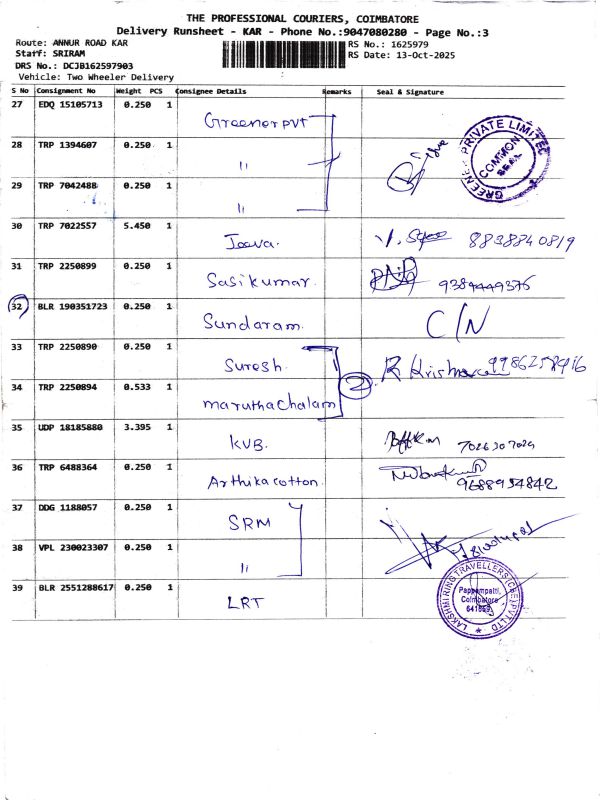 THE PROFESSIONAL COURIERS, COIMBATORE
Delivery Runsheet - KAR - Phone No.:9047080280 - Page No.:3
Route: ANNUR ROAD KAR
RS No.: 1625979
Staff: SRIRAM
RS Date: 13-Oct-2025
DRS No.: DCJB162597903
Vehicle: Two Wheeler Delivery
S No Consignment No Weight PCS Consignee Details Remarks Seal & Signature
27 EDQ 15105713 0.250 1 Greener pvt
28 TRP 1394607 0.250 1 "
GREENE PRIVATE LIMITED COMMON SEAL
29 TRP 7042488 0.250 1 "
30 TRP 7022557 5.450 1 Jeeva. 8838840819
31 TRP 2250899 0.250 1 Sasikumar. 9384449376
32 BLR 190351723 0.250 1 Sundaram. C/N
33 TRP 2250890 0.250 1 Suresh. 2 R Krishna
34 TRP 2250894 0.533 1 maruthachalam
35 UDP 18185880 3.395 1 KVB.
36 TRP 6488364 0.250 1 Arthika cotton. 9688954842
37 DDG 1188057 0.250 1 SRM
38 VPL 230023307 0.250 1 "
39 BLR 2551288617 0.250 1 LRT
LAKSHMI RING TRAVELLERS (CBE) PVT LTD
Pappampatti,
Coimbatore